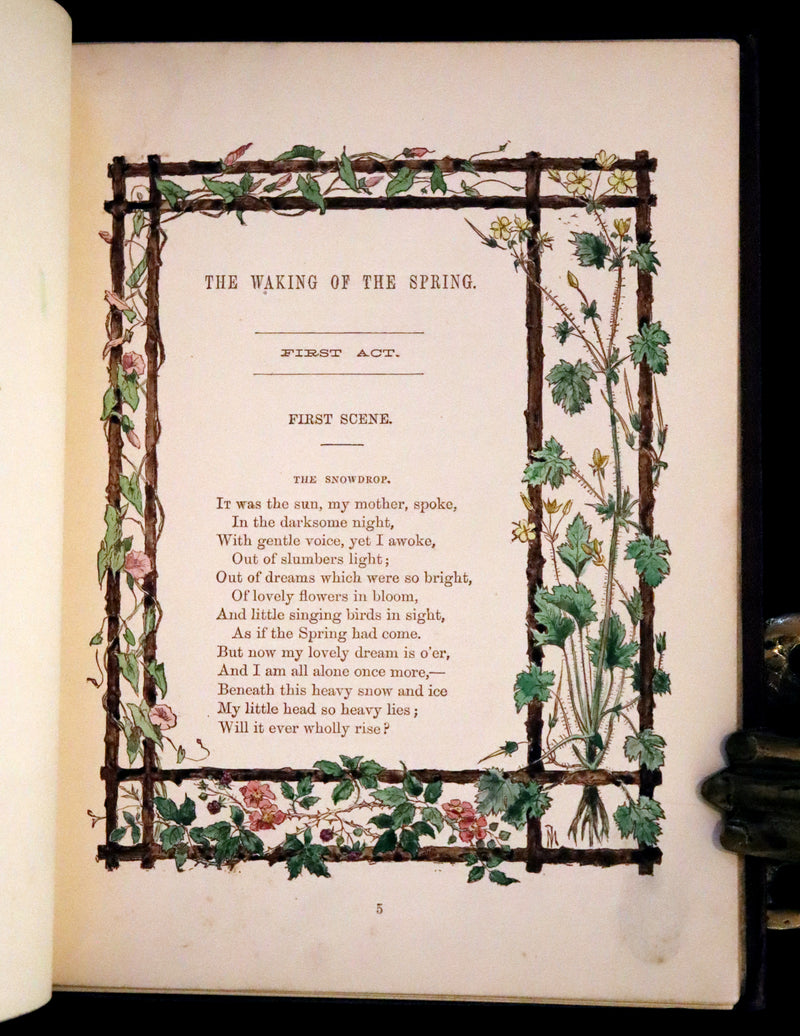 THE WAKING OF THE SPRING.
FIRST ACT.
FIRST SCENE.
THE SNOWDROP.
IT was the sun, my mother, spoke,
In the darksome night,
With gentle voice, yet I awoke,
Out of slumbers light;
Out of dreams which were so bright,
Of lovely flowers in bloom,
And little singing birds in sight,
As if the Spring had come.
But now my lovely dream is o'er,
And I am all alone once more,—
Beneath this heavy snow and ice
My little head so heavy lies;
Will it ever wholly rise?
5